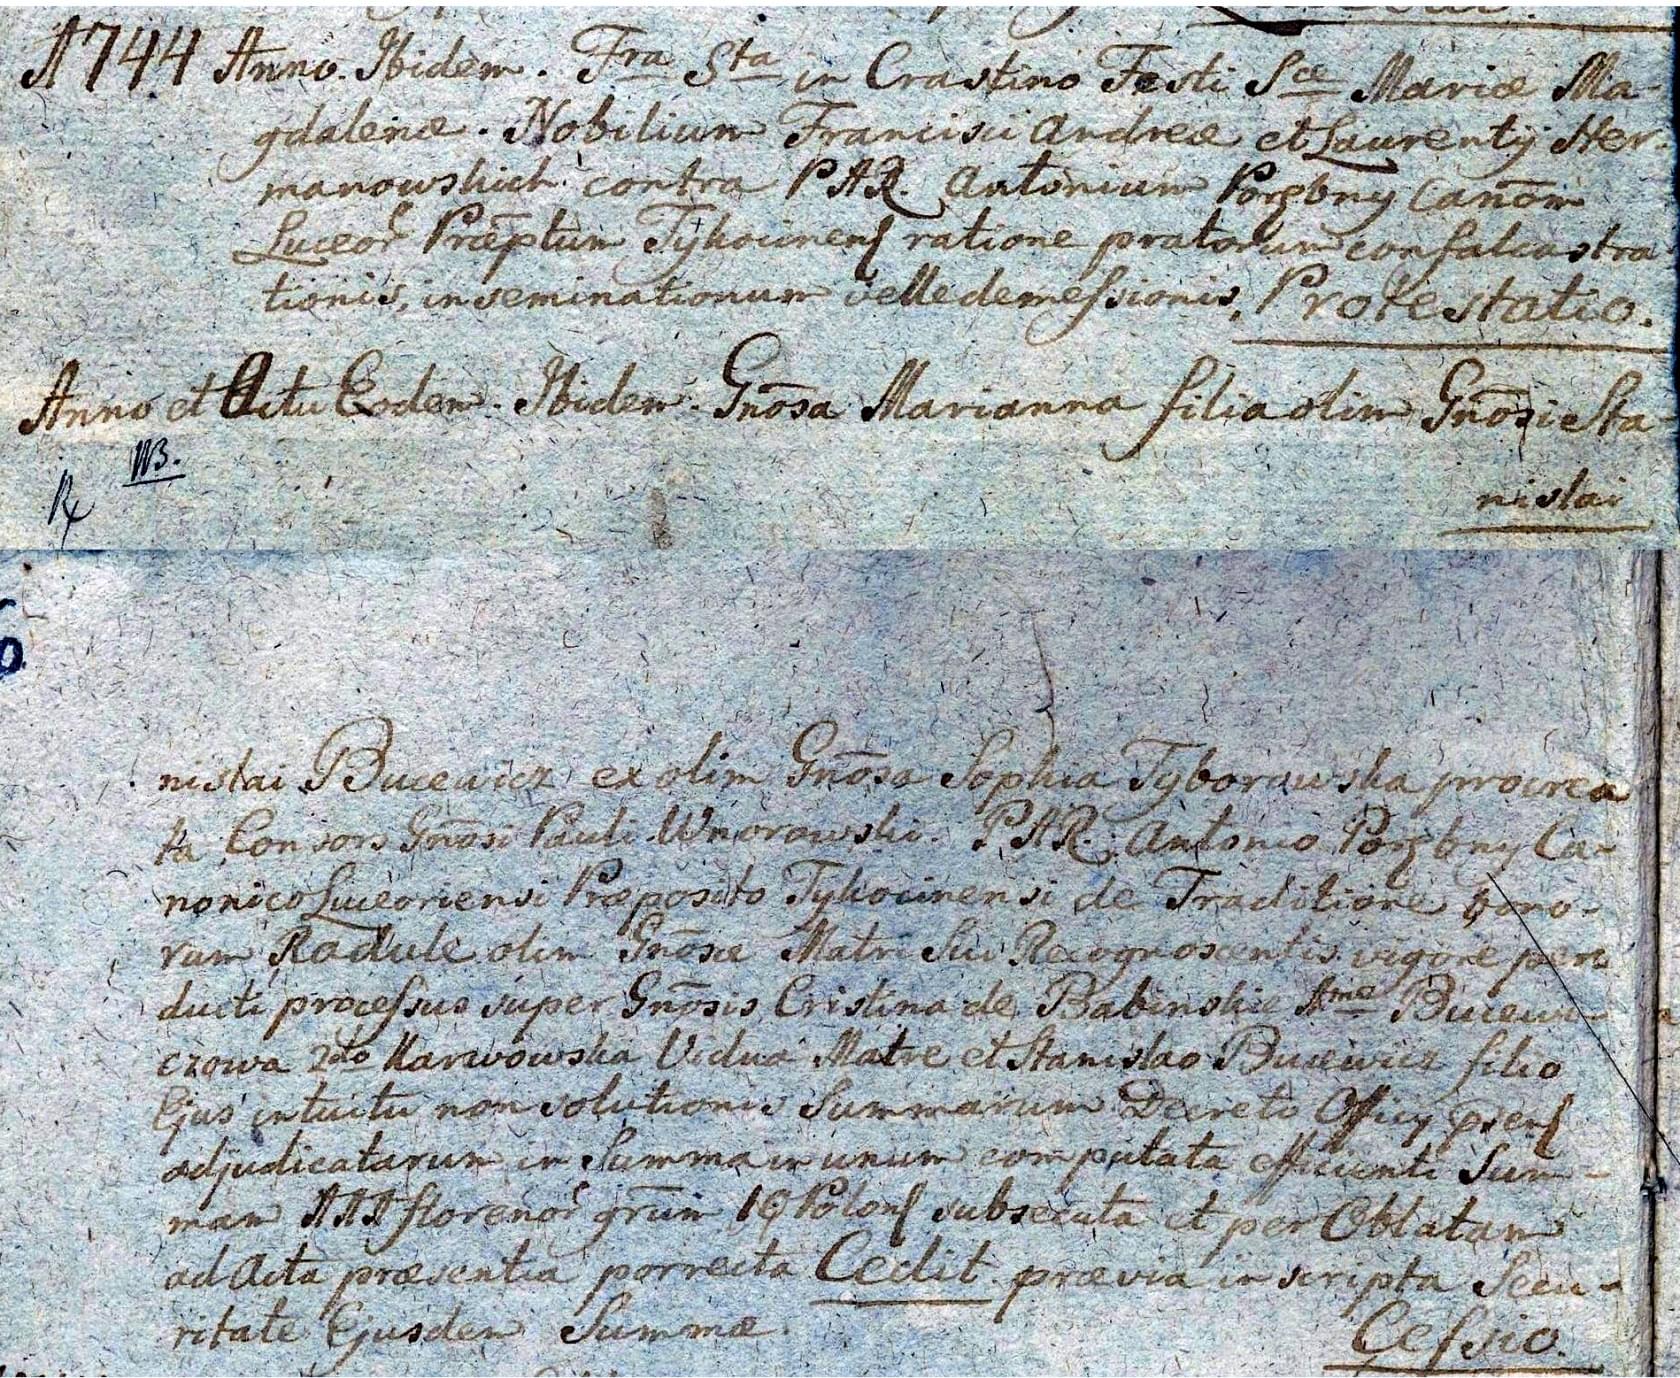 A1744 Anno. Ibidem. Fra Sta in Crastino Festi Scæ Mariæ Ma-
gdalenæ. Nobilium Francisci Andreæ et Laurentij Her-
manowskich contra PAR. Antonium Porzbny Canōm
Luceor Præptum Tykocinens ratione pratorum confalcastra
tionis, inseminationum velle demessionis, Protestatio.
Anno et Actu Eodem. Ibidem. Gnōsa Marianna filia olim Gnōsi Sta
NB.
nislai
nislai Bucewicz ex olim Gnōsa Sophia Tyborowska procrea
ta Consors Gnōsi Pauli Wnorowski. PAR. Antonio Porzbny Ca-
nonico Luceoriensi Præposito Tykocinensi de Traditione bono-
rum Radule olim Gnōsæ Matri Sui Recognoscentis vigore per
ducti processus super Gnōsis Cristina de Babinskie Amæ Bucewi-
czowa 2do Karwowska Vidua Matre et Stanislao Bucewicz filio
Ejus intuitu non solutionis Summarum Decreto Officij præns
adjudicatarum in Summa in unum computata efficienti Sum-
mam florenor grūm 19 Polons subsecuta et per Oblatam
ad Acta præsentia porrecta Cedit prævia inscripta Secu-
ritate Ejusdem Summæ. Cessio.